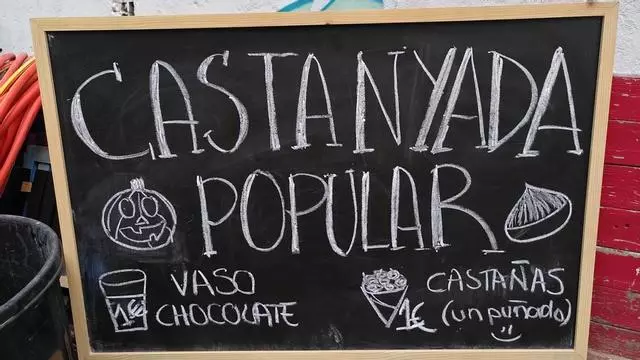 CASTANYADA
POPULAR
1€ VASO
CHOCOLATE
CASTAÑAS
1€ (un puñado)